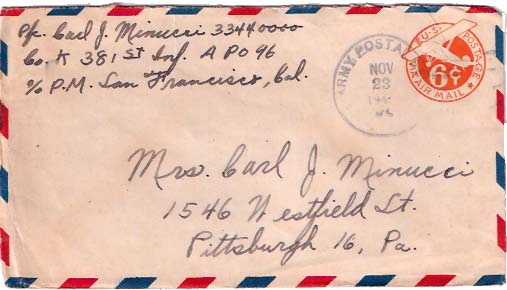 Pfc. Carl J. Minucci 33440000
Co. K 381st Inf. A PO 96
c/o P.M. San Francisco, Cal.
ARMY POSTAL
NOV
23
194
U.S. POSTAGE
6¢
VIA AIR MAIL
Mrs. Carl J. Minucci
1546 Westfield St.
Pittsburgh 16, Pa.